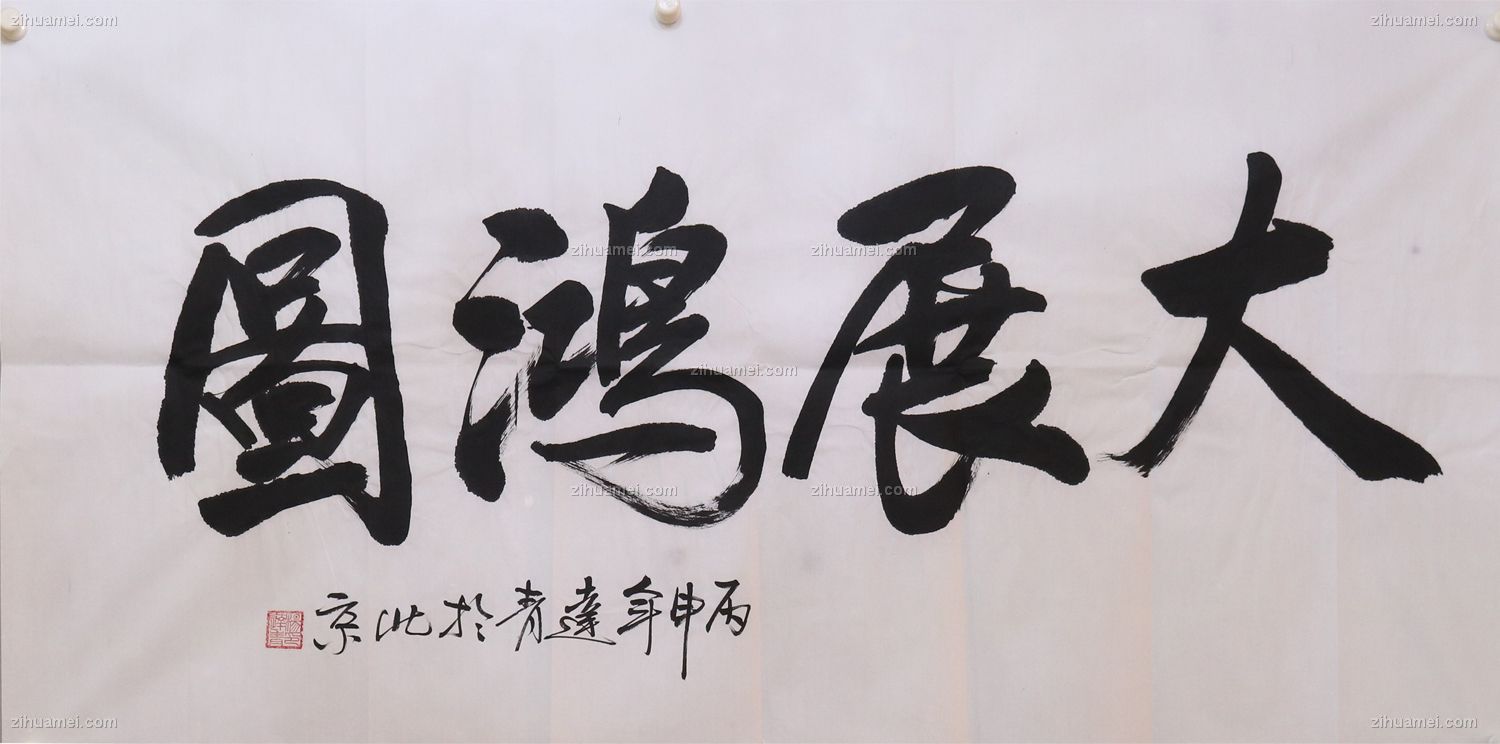 大展鴻圖
丙申年達青於北京
zihuamei.com
zihuamei.com
zihuamei.com
zihuamei.com
zihuamei.com
zihuamei.com
zihuamei.com
zihuamei.com
zihuamei.com